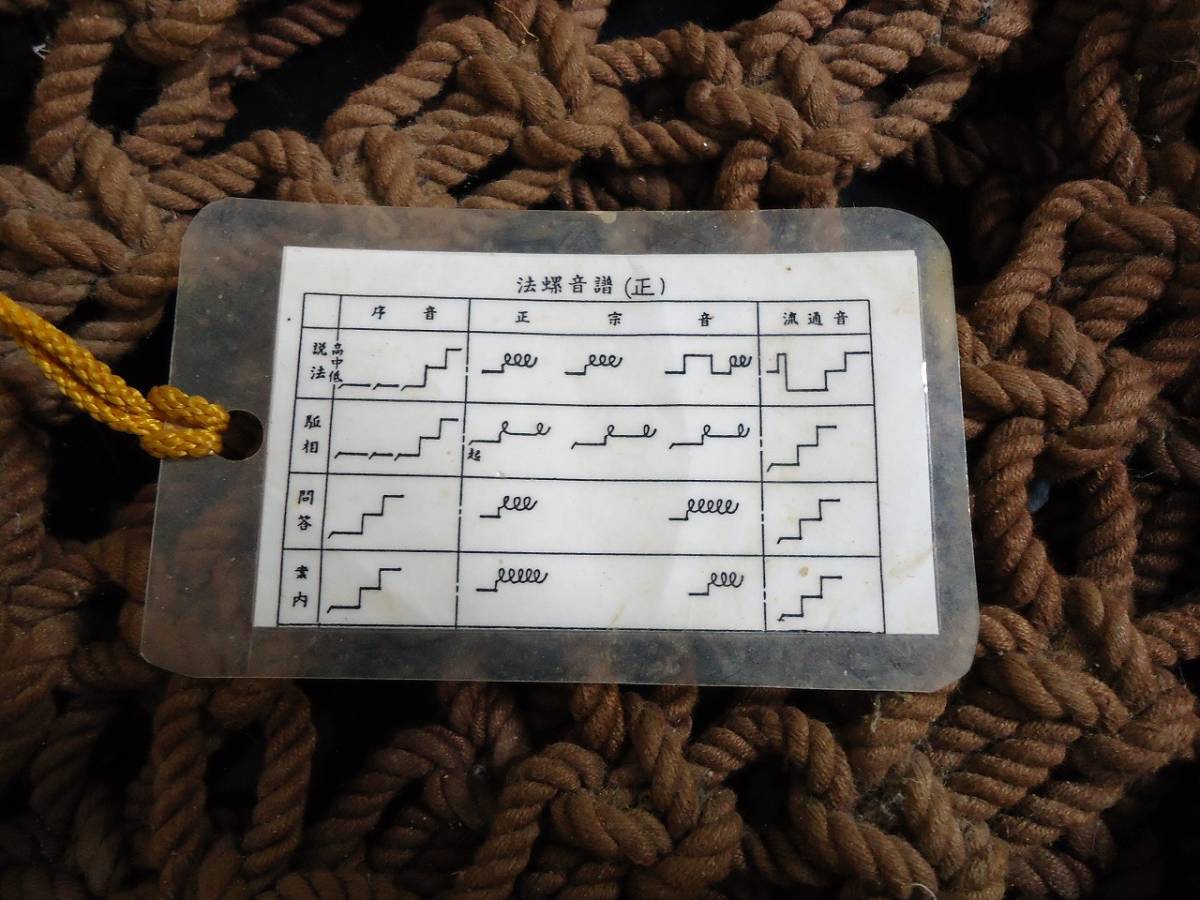 法螺音譜(正)
序音 正宗音 流通音
説法 高中低
駈相 起
問答
案内